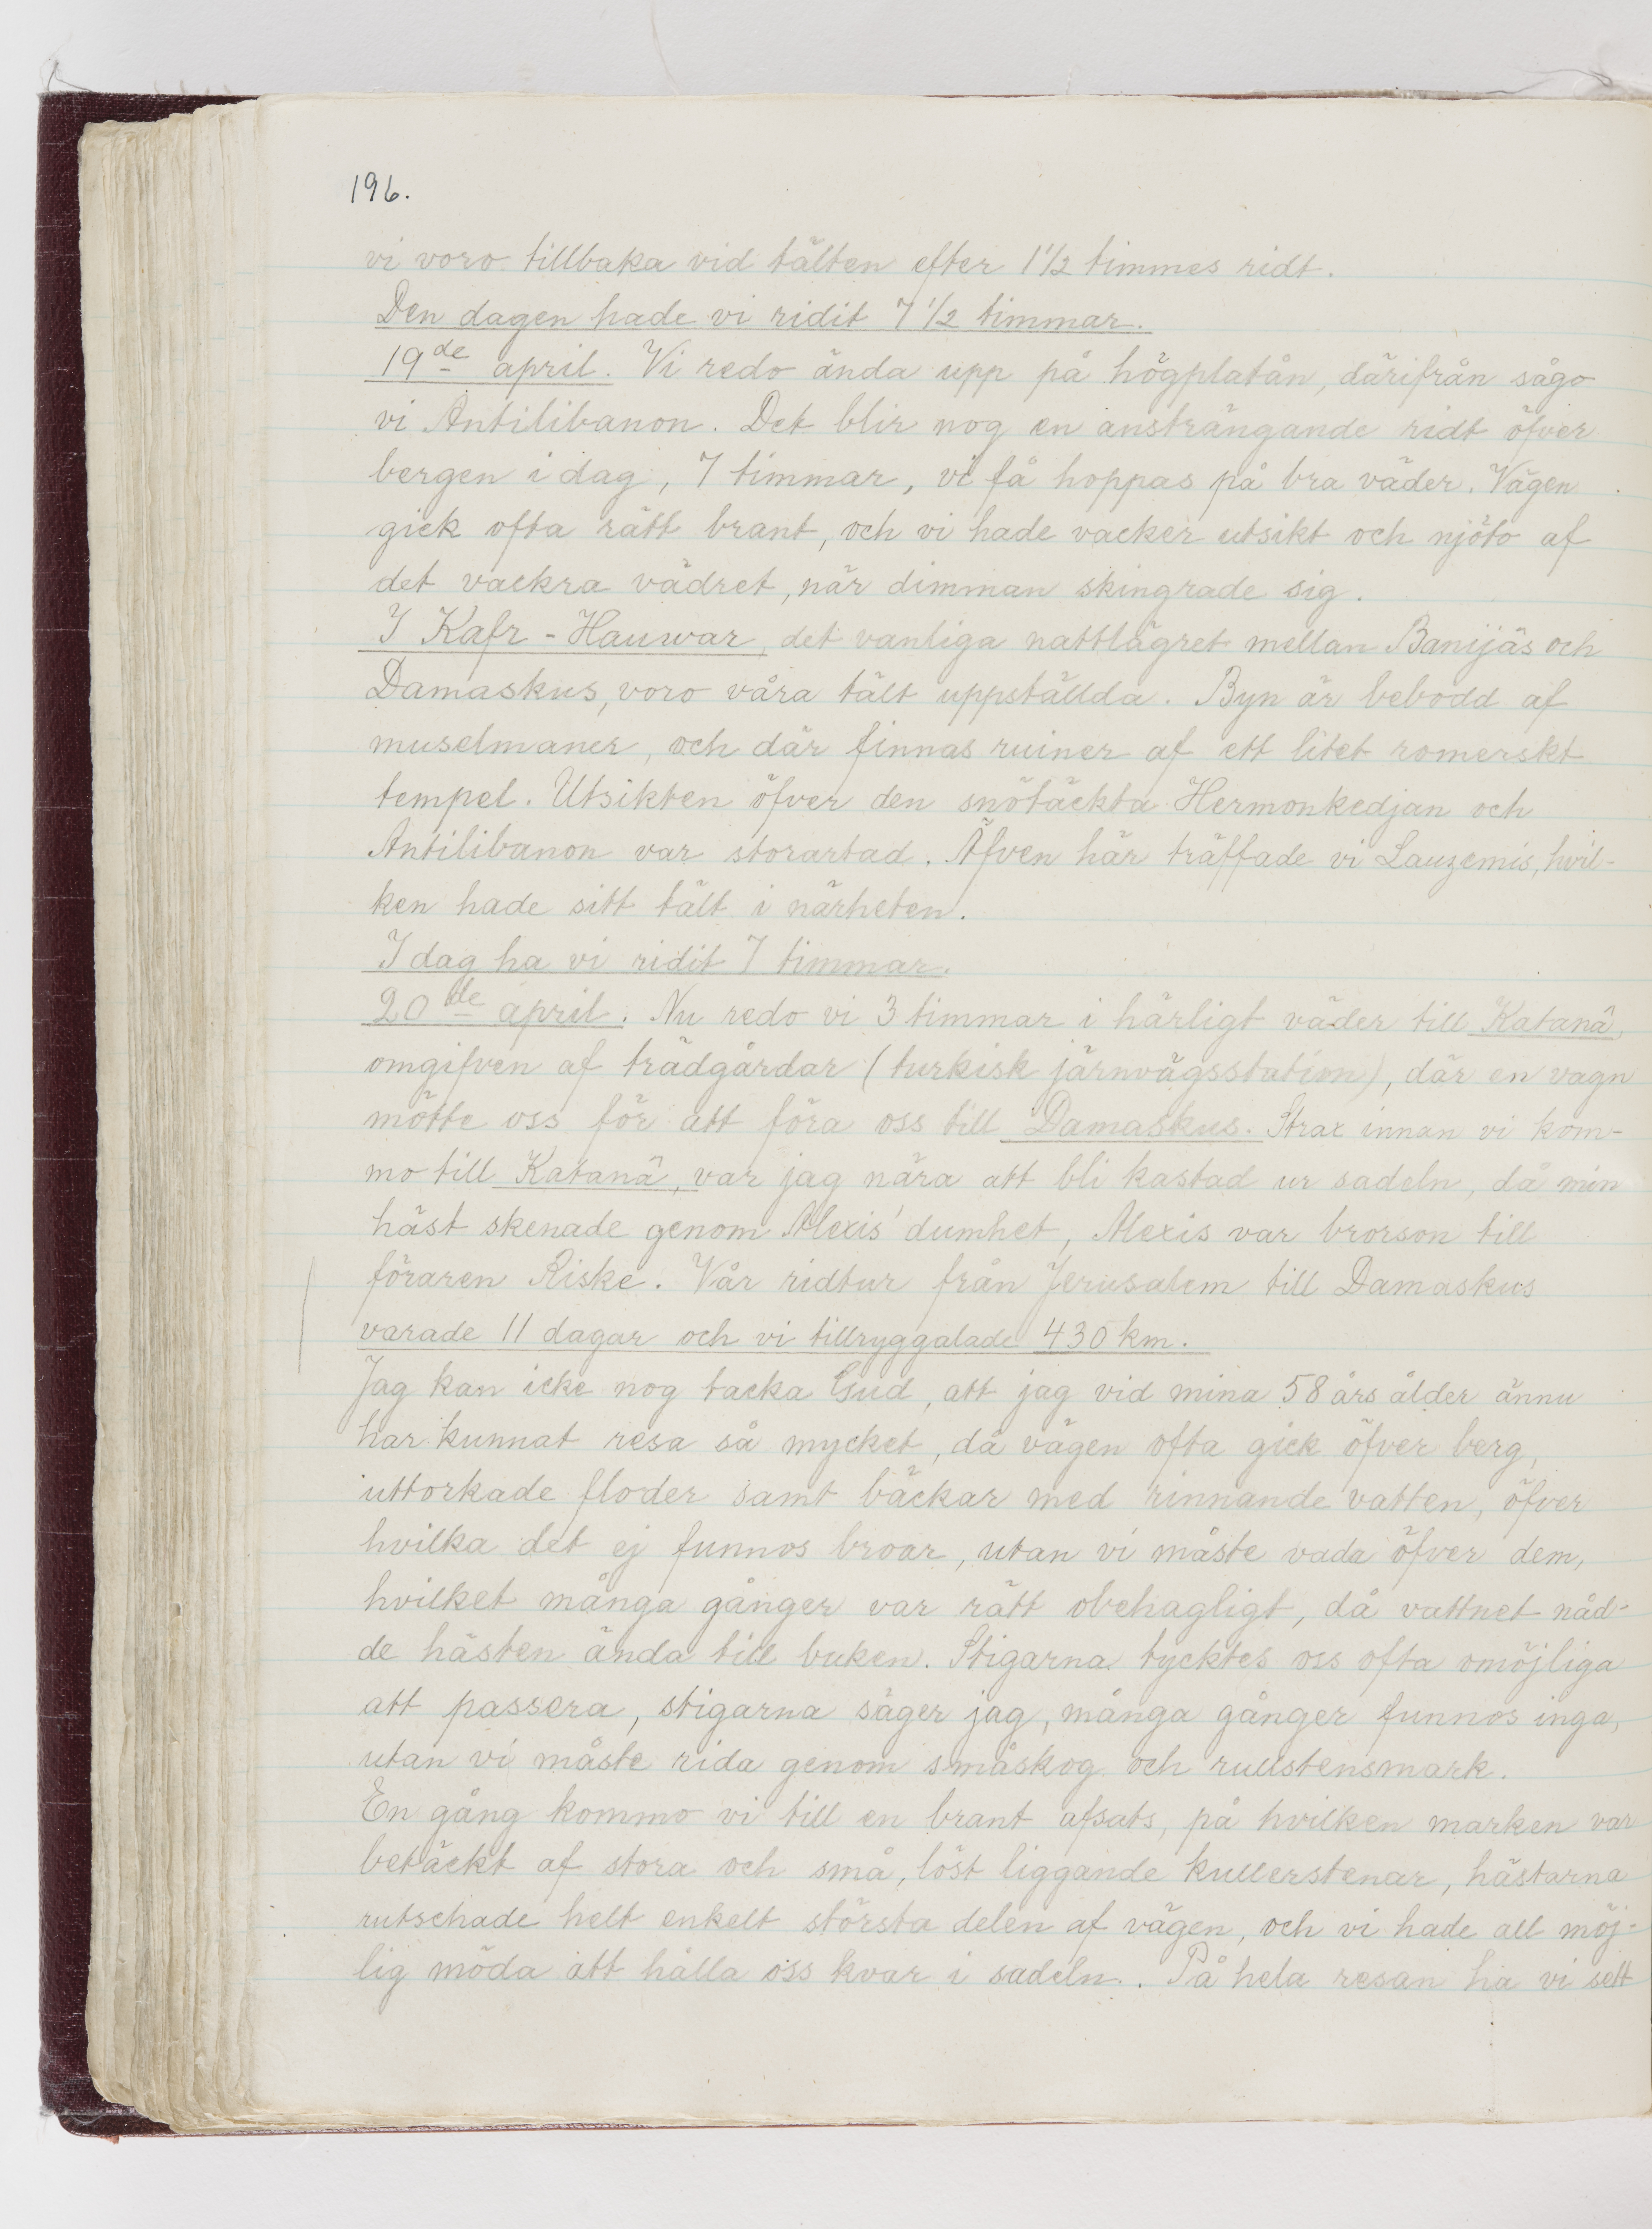 196.
vi voro tillbaka vid tälten efter 1 1/2 timmes ridt.
Den dagen hade vi ridit 7 1/2 timmar.
19de april. Vi redo ända upp på högplatån, därifrån sågo
vi Antilibanon. Det blir nog en ansträngande ridt öfver
bergen i dag, 7 timmar, vi få hoppas på bra väder. Vägen
gick ofta rätt brant, och vi hade vacker utsikt och njöto af
det vackra vädret, när dimman skingrade sig.
I Kafr-Hauwar, det vanliga nattlägret mellan Banijäs och
Damaskus, voro våra tält uppställda. Byn är bebodd af
muselmaner, och där finnas ruiner af ett litet romerskt
tempel. Utsikten öfver den snötäckta Hermonkedjan och
Antilibanon var storartad. Äfven här träffade vi Lauzemis, hvil-
ken hade sitt tält i närheten.
I dag ha vi ridit 7 timmar.
20de april. Nu redo vi 3 timmar i härligt väder till Katanâ,
omgifven af trädgårdar (turkisk järnvägsstation), där en vagn
mötte oss för att föra oss till Damaskus. Strax innan vi kom-
mo till Katanâ, var jag nära att bli kastad ur sadeln, då min
häst skenade genom Alexis' dumhet, Alexis var brorson till
föraren Riske. Vår ridtur från Jerusalem till Damaskus
varade 11 dagar och vi tillryggalade 430 km.
Jag kan icke nog tacka Gud, att jag vid mina 58 års ålder ännu
har kunnat resa så mycket, då vägen ofta gick öfver berg,
uttorkade floder samt bäckar med rinnande vatten, öfver
hvilka det ej funnos broar, utan vi måste vada öfver dem,
hvilket många gånger var rätt obehagligt, då vattnet nåd-
de hästen ända till buken. Stigarna tycktes oss ofta omöjliga
att passera, stigarna säger jag, många gånger funnos inga,
utan vi måste rida genom småskog och rullstensmark.
En gång kommo vi till en brant afsats, på hvilken marken var
betäckt af stora och små, löst liggande kullerstenar, hästarna
rutschade helt enkelt största delen af vägen, och vi hade all möj-
lig möda att hålla oss kvar i sadeln. På hela resan ha vi sett